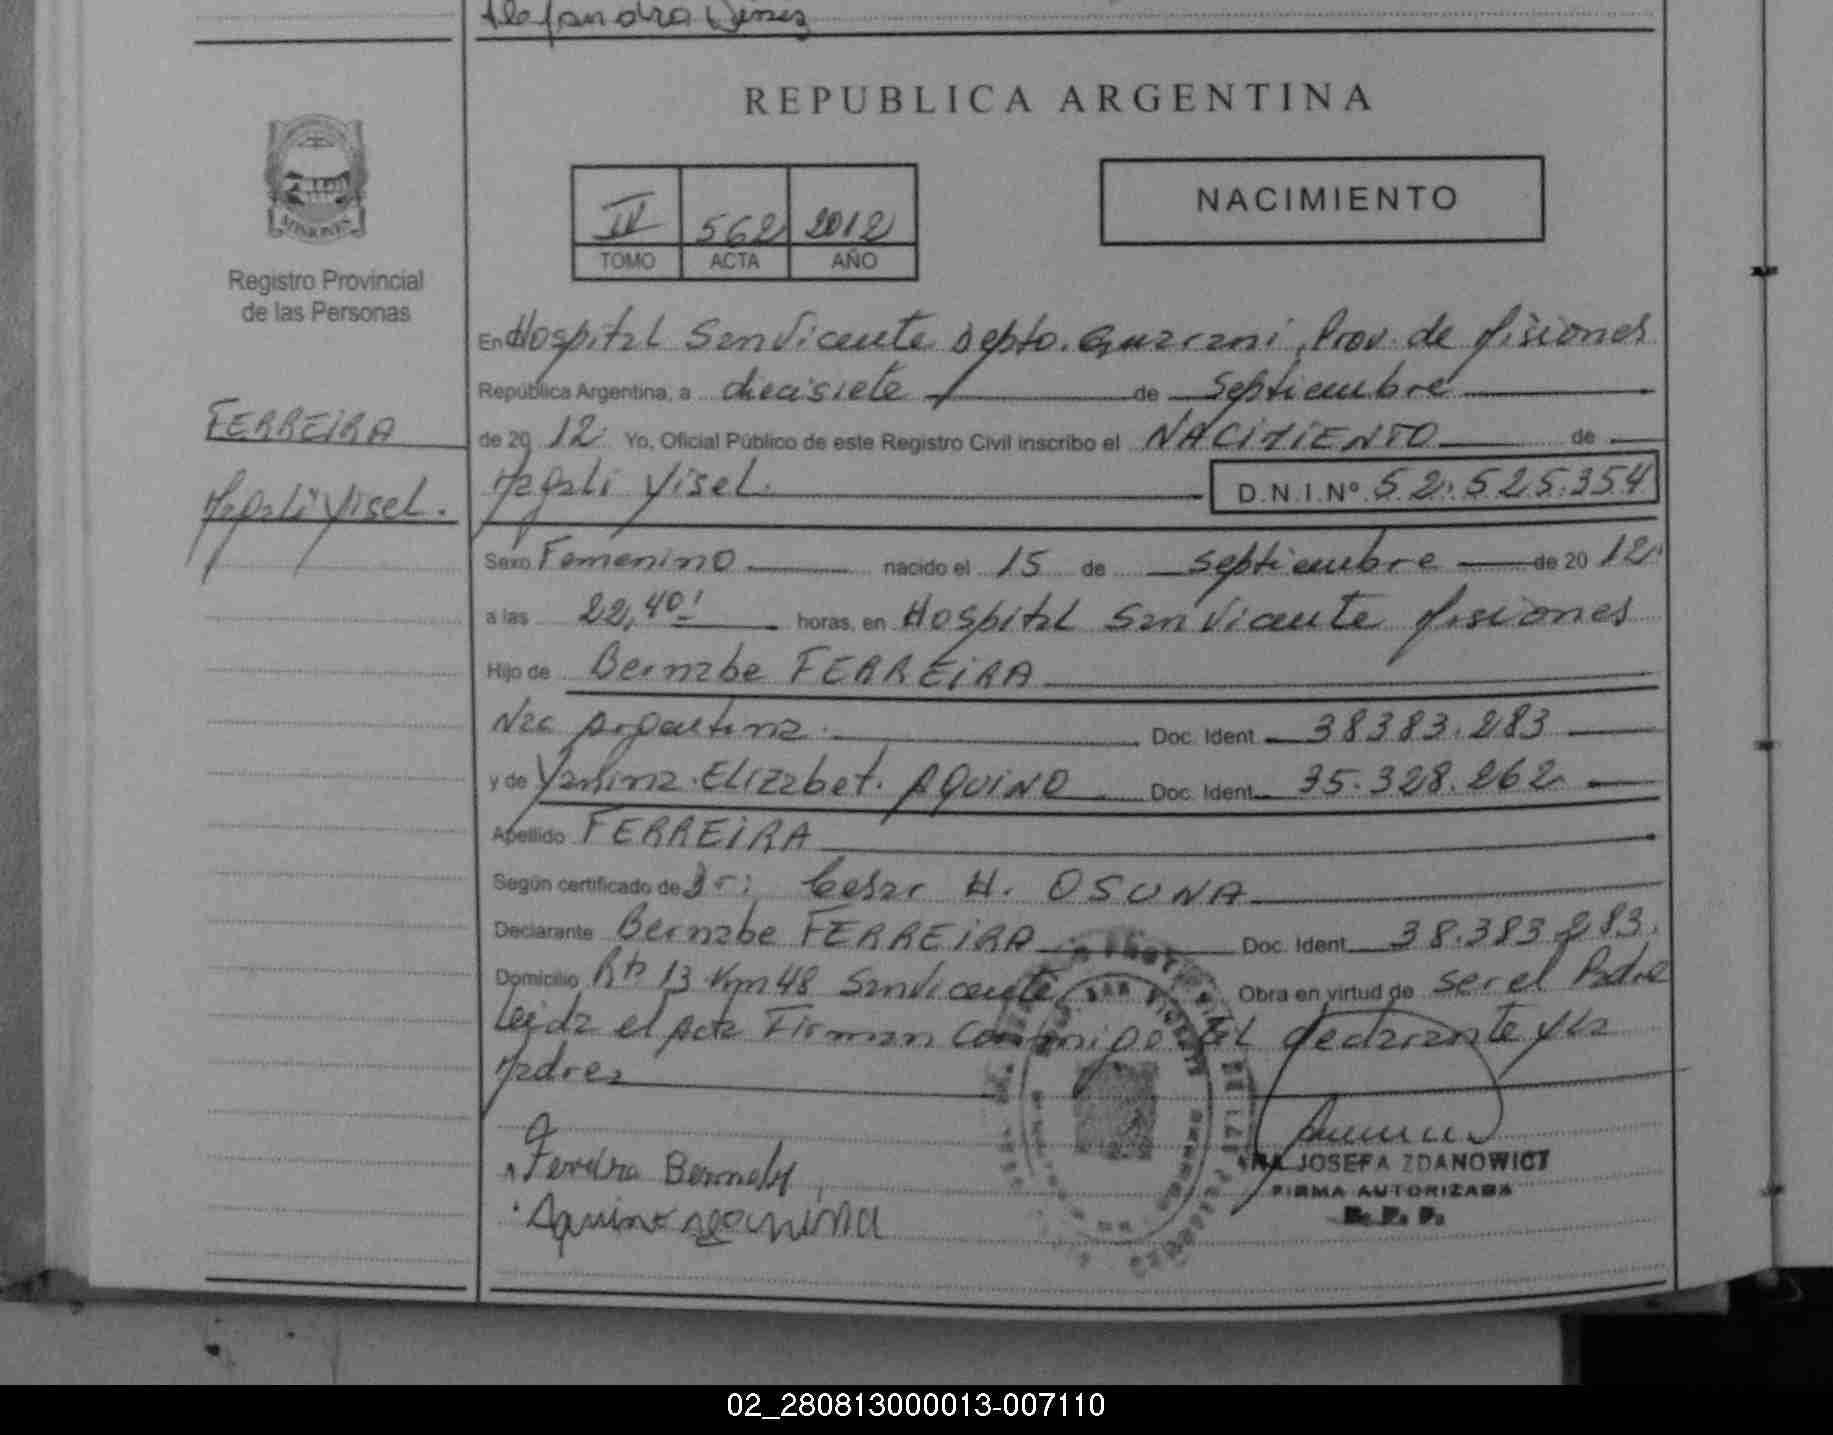 Alejandra
REPUBLICA ARGENTINA
NACIMIENTO
IV 562 2012
TOMO ACTA AÑO
MISIONES
Registro Provincial
de las Personas
FERREIRA
Magali Yisel.
En Hospital San Vicente Depto. Guarani, Prov. de Misiones
República Argentina, a diecisiete de Septiembre
de 20 12 Yo, Oficial Público de este Registro Civil inscribo el NACIMIENTO de
Magali Yisel. D.N.I.Nº 52.525.354
Sexo Femenino nacido el 15 de Septiembre de 20 12
a las 22,40' horas, en Hospital San Vicente Misiones
Hijo de Bernabe FERREIRA
Nac Argentina Doc. Ident. 38383.283
y de Yanina Elizabet. AQUINO Doc. Ident. 35.328.262
Apellido FERREIRA
Según certificado de Dr: Cesar H. OSUNA
Declarante Bernabe FERREIRA Doc. Ident. 38.383.283.
Domicilio Rta 13 Km 48 San Vicente Obra en virtud de ser el Padre
Leida el acta Firman Conmigo El declarante y la
Madre
Ferreira Bernabe
Aquino Yanina
JOSEFA ZDANOWICT
FIRMA AUTORIZADA
R. P. P.
02_280813000013-007110